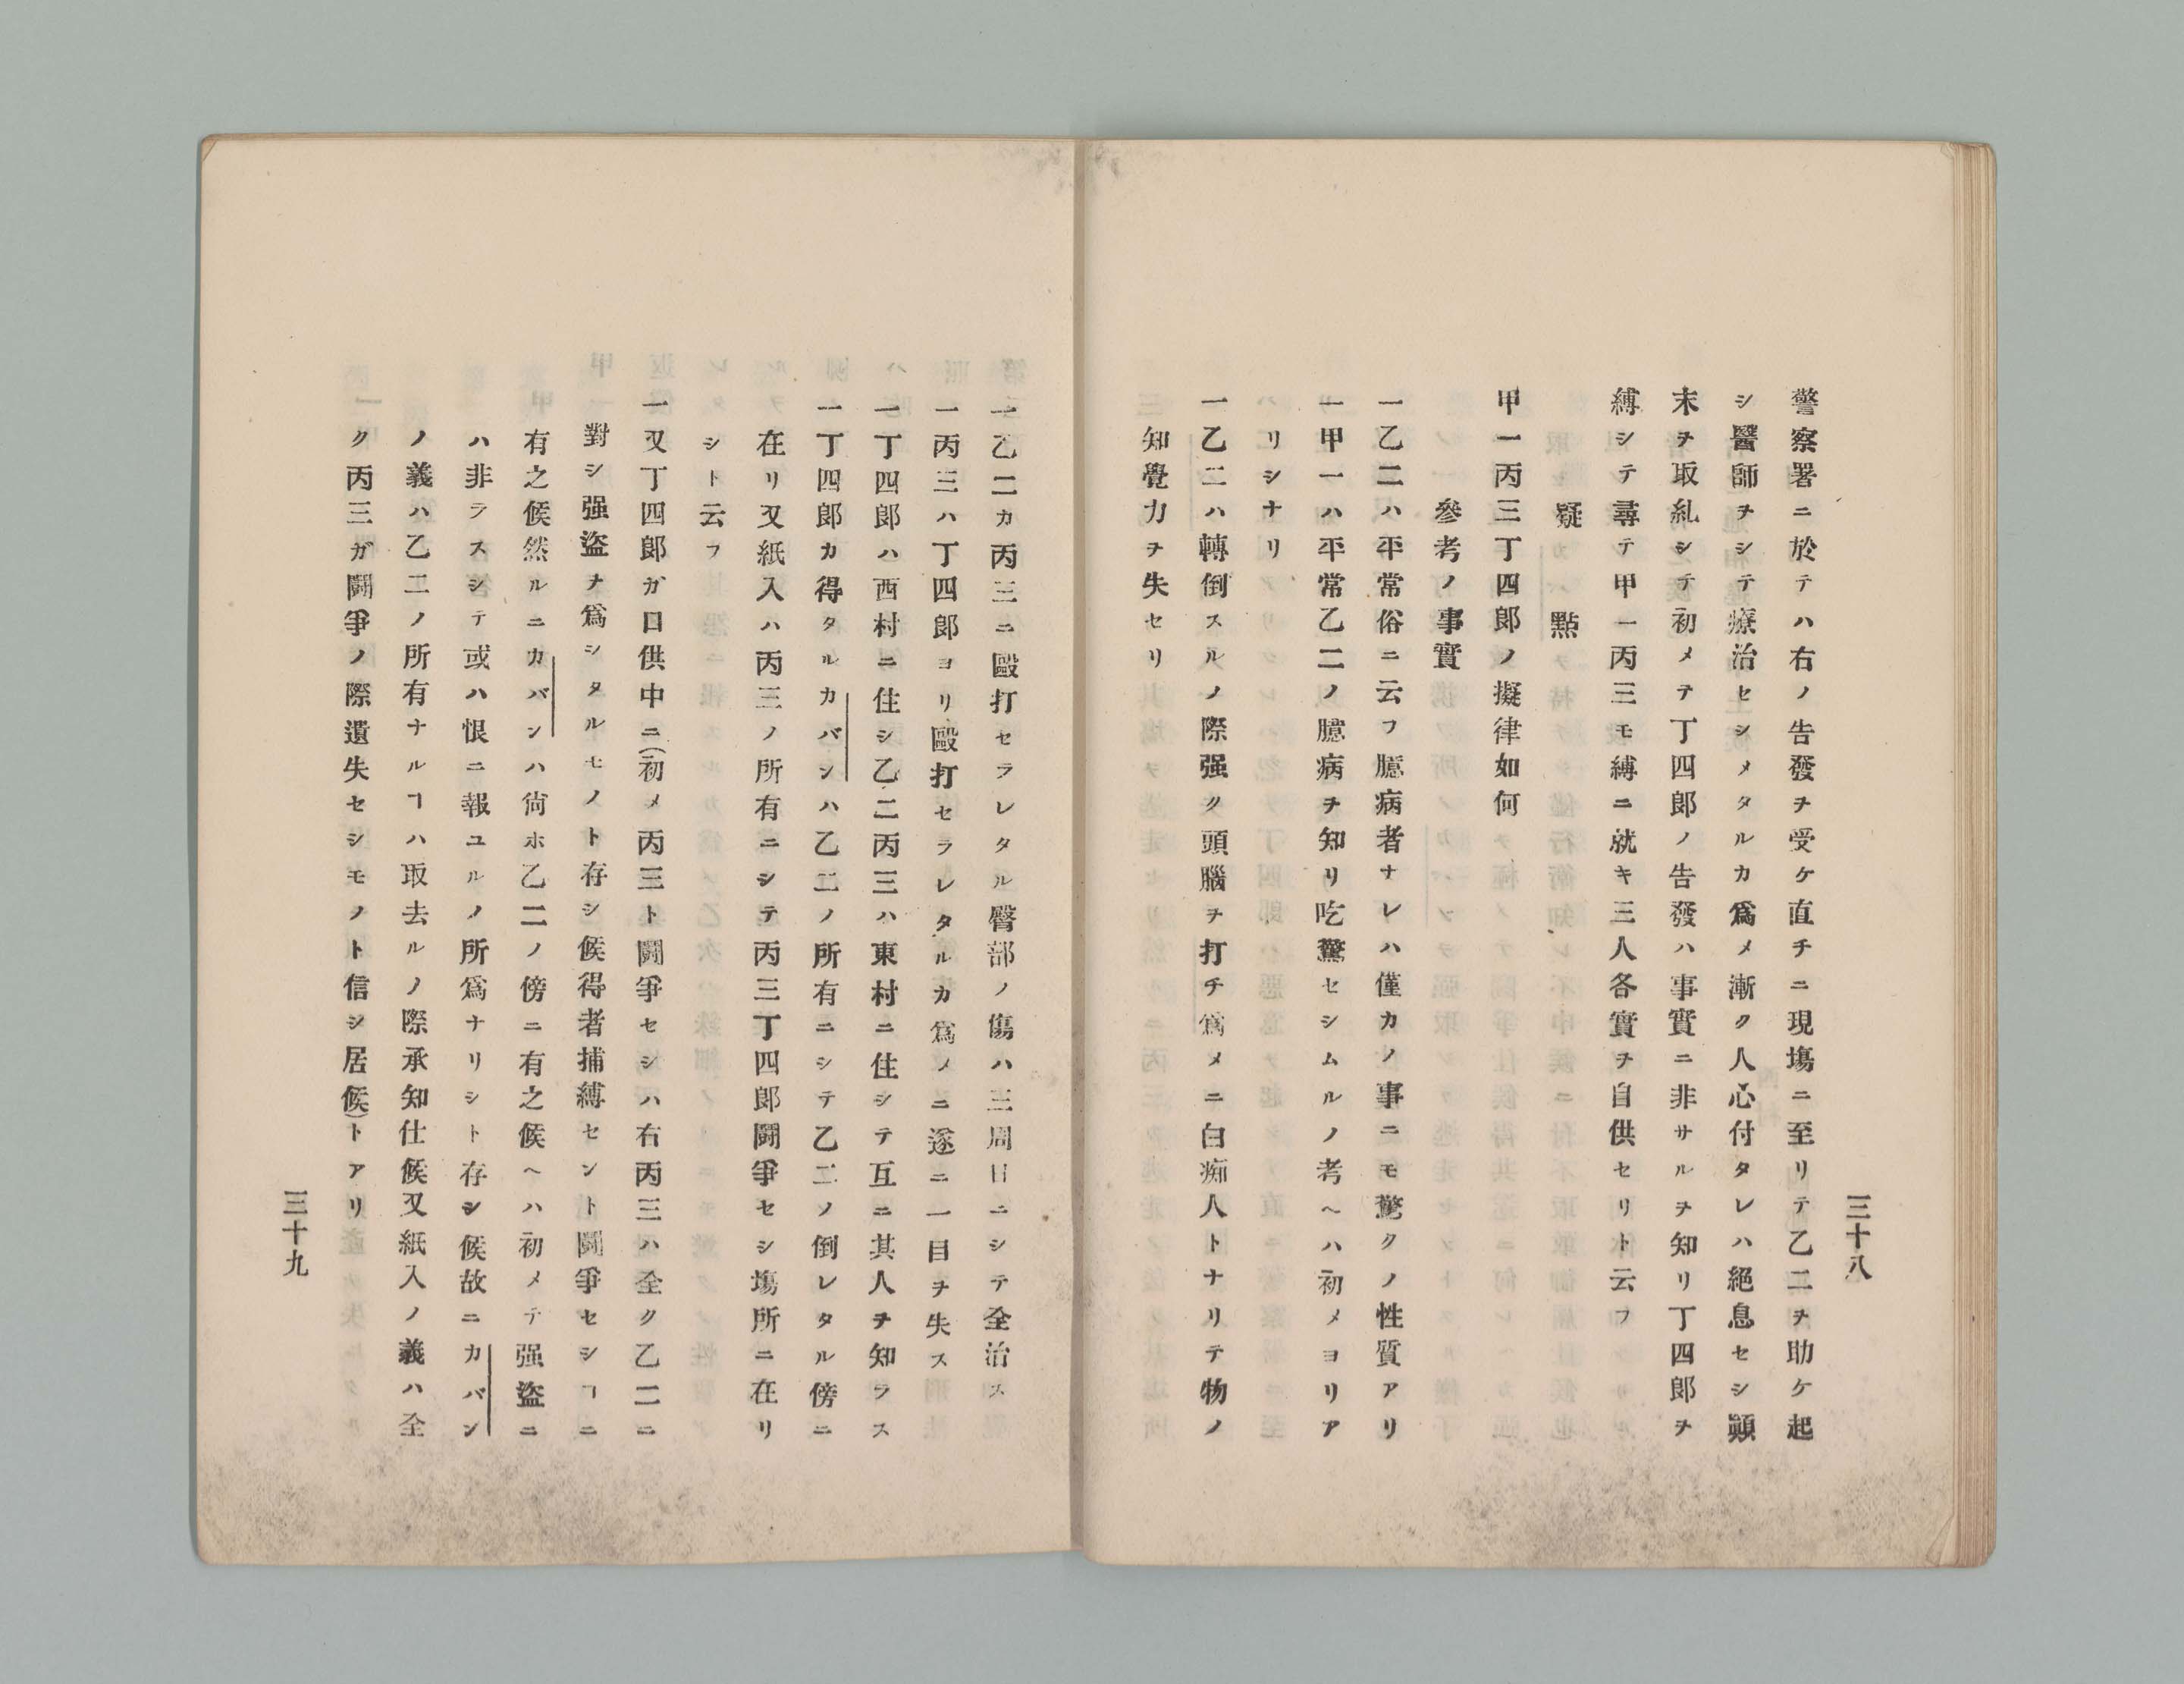 三十八
警察署ニ於テハ右ノ告發チ受ケ直チニ現塲ニ至リテ乙二ヲ助ケ起
シ醫師ヲシテ療治セシメタルカ爲メ漸ク人心付タレハ絕息セシ顚
末ヲ取糺シテ初メテ丁四郎ノ告發ハ事實ニ非サルヲ知リ丁四郎ヲ
縛シテ尋テ甲一丙三モ縛ニ就キ三人各實ヲ自供セリト云フ
疑點
甲一丙三丁四郎ノ擬律如何
參考ノ事實
一乙二ハ平常俗ニ云フ臆病者ナレハ僅カノ事ニモ驚クノ性質アリ
一甲一ハ平常乙二ノ臆病ヲ知リ吃驚セシムルノ考ヘハ初メヨリア
リシナリ
一乙二ハ轉倒スルノ際强ク頭腦ヲ打チ爲メニ白痴人トナリテ物ノ
知覺力ヲ失セリ
一乙二カ丙三ニ毆打セラレタル臀部ノ傷ハ三周日ニシテ全治ス
一丙三ハ丁四郎ヨリ毆打セラレタルカ爲メニ遂ニ一目ヲ失ス
一丁四郎ハ西村ニ住シ乙二丙三ハ東村ニ住シテ互ニ其人ヲ知ラス
一丁四郎カ得タルカバンハ乙二ノ所有ニシテ乙二ノ倒レタル傍ニ
在リ又紙入ハ丙三ノ所有ニシテ丙三丁四郎鬪爭セシ塲所ニ在リ
シト云フ
一又丁四郎ガ口供中ニ(初メ丙三ト鬪爭セシハ右丙三ハ全ク乙二ニ
對シ强盜ナ爲シタルモノト存シ候得者捕縛セント鬪爭セシヿニ
有之候然ルニカバンハ尙ホ乙二ノ傍ニ有之候ヘハ初メテ强盜ニ
ハ非ラスシテ或ハ恨ニ報ユルノ所爲ナリシト存シ候故ニカバン
ノ義ハ乙二ノ所有ナルヿハ取去ルノ際承知仕候又紙入ノ義ハ全
ク丙三ガ鬪爭ノ際遺失セシモノト信シ居候)トアリ
三十九